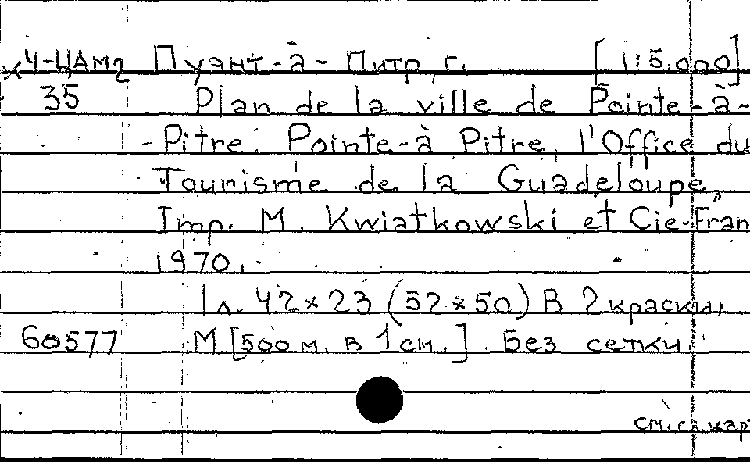 ×Ч-ЦАм2 Пуант-à-Питр г. [1:5.000]
35 Plan de la ville de Pointe-à-
-Pitre. Pointe-à Pitre, l'Office du
Tourisme de la Guadeloupe,
Imp. M. Kwiatkowski et Cie-Fran
1970.
1 л. 42×23 (52×50) В 2 краски.
60577 М [500 м. в 1 см.]. Без сетки.
см. сл. кар